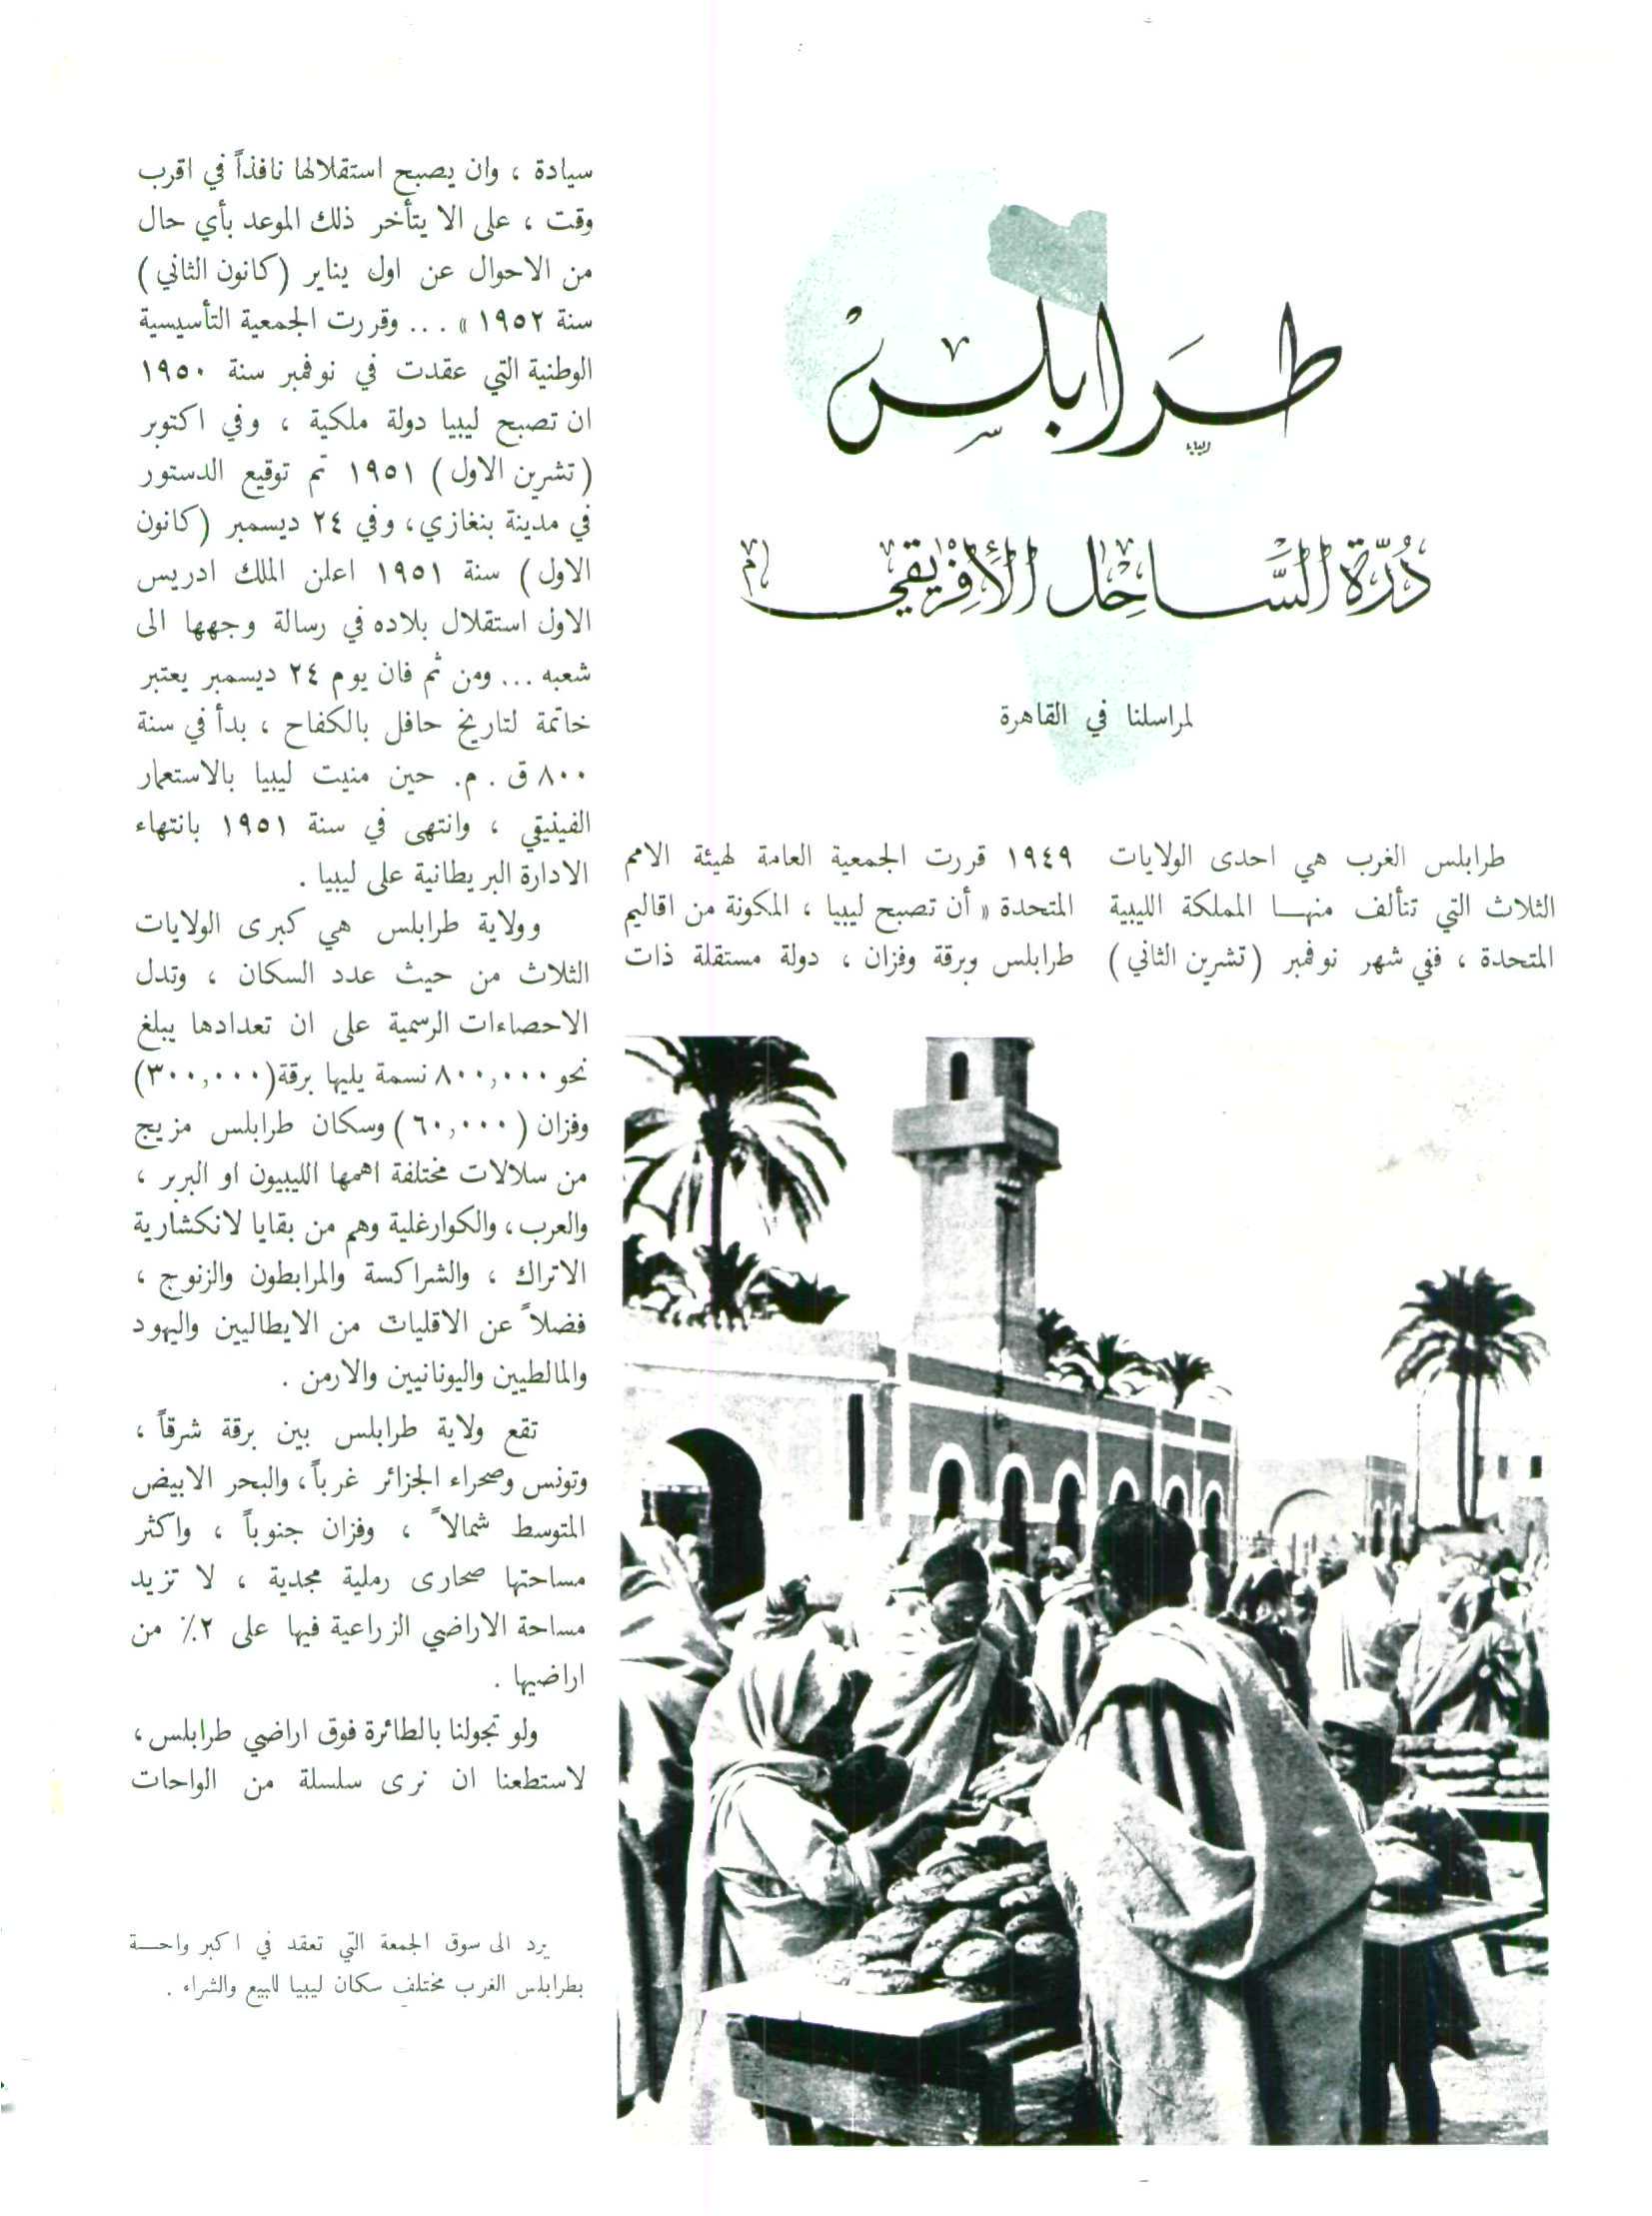 طرابلس
دُرّة السَّاحِل الأَفِرْيقي
لمراسلنا في القاهرة
طرابلس الغرب هي احدى الولايات
الثلاث التي تتألف منهـا المملكة الليبية
المتحدة ، ففي شهر نوفمبر (تشرين الثاني)
١٩٤٩ قررت الجمعية العامة لهيئة الامم
المتحدة « أن تصبح ليبيا ، المكونة من اقاليم
طرابلس وبرقة وفزان ، دولة مستقلة ذات
سيادة ، وان يصبح استقلالها نافذاً في اقرب
وقت ، على الا يتأخر ذلك الموعد بأي حال
من الاحوال عن اول يناير (كانون الثاني)
سنة ١٩٥٢ » ... وقررت الجمعية التأسيسية
الوطنية التي عقدت في نوفمبر سنة ١٩٥٠
ان تصبح ليبيا دولة ملكية ، وفي اكتوبر
(تشرين الاول) ١٩٥١ تم توقيع الدستور
في مدينة بنغازي، وفي ٢٤ ديسمبر (كانون
الاول) سنة ١٩٥١ اعلن الملك ادريس
الاول استقلال بلاده في رسالة وجهها الى
شعبه ... ومن ثم فان يوم ٢٤ ديسمبر يعتبر
خاتمة لتاريخ حافل بالكفاح ، بدأ في سنة
٨٠٠ ق . م. حين منيت ليبيا بالاستعمار
الفينيقي ، وانتهى في سنة ١٩٥١ بانتهاء
الادارة البريطانية على ليبيا .
وولاية طرابلس هي كبرى الولايات
الثلاث من حيث عدد السكان ، وتدل
الاحصاءات الرسمية على ان تعدادها يبلغ
نحو ٨٠٠,٠٠٠ نسمة يليها برقة(٣٠٠,٠٠٠)
وفزان (٦٠,٠٠٠) وسكان طرابلس مزيج
من سلالات مختلفة اهمها الليبيون او البربر ،
والعرب، والكوارغلية وهم من بقايا لانكشارية
الاتراك ، والشراكسة والمرابطون والزنوج ،
فضلاً عن الاقليات من الايطاليين واليهود
والمالطيين واليونانيين والارمن .
تقع ولاية طرابلس بين برقة شرقاً ،
وتونس وصحراء الجزائر غرباً، والبحر الابيض
المتوسط شمالاً ، وفزان جنوباً ، واكثر
مساحتها صحارى رملية مجدية ، لا تزيد
مساحة الاراضي الزراعية فيها على ٢٪ من
اراضيها .
ولو تجولنا بالطائرة فوق اراضي طرابلس،
لاستطعنا ان نرى سلسلة من الواحات
يرد الى سوق الجمعة التي تعقد في اكبر واحـة
بطرابلس الغرب مختلف سكان ليبيا للبيع والشراء .